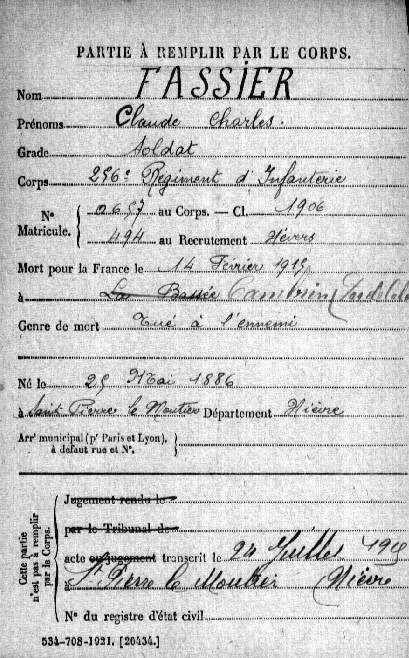 PARTIE À REMPLIR PAR LE CORPS.
Nom FASSIER
Prénoms Claude Charles.
Grade Soldat
Corps 256e Régiment d'Infanterie
N° Matricule. { 0657 au Corps. — Cl. 1906
494 au Recrutement Nevers
Mort pour la France le 14 Février 1915
à La Bassée Cambrin
Genre de mort Tué à l'ennemi
Né le 25 Mai 1886
à Saint Pierre le Moutier Département Nièvre
Arr' municipal (p' Paris et Lyon), à défaut rue et N°. }
Cette partie n'est pas à remplir par le Corps.
Jugement rendu le
par le Tribunal de
acte ou jugement transcrit le 24 Juillet
à St Pierre le Moutier Nièvre
N° du registre d'état civil
534-708-1921. [20434.]